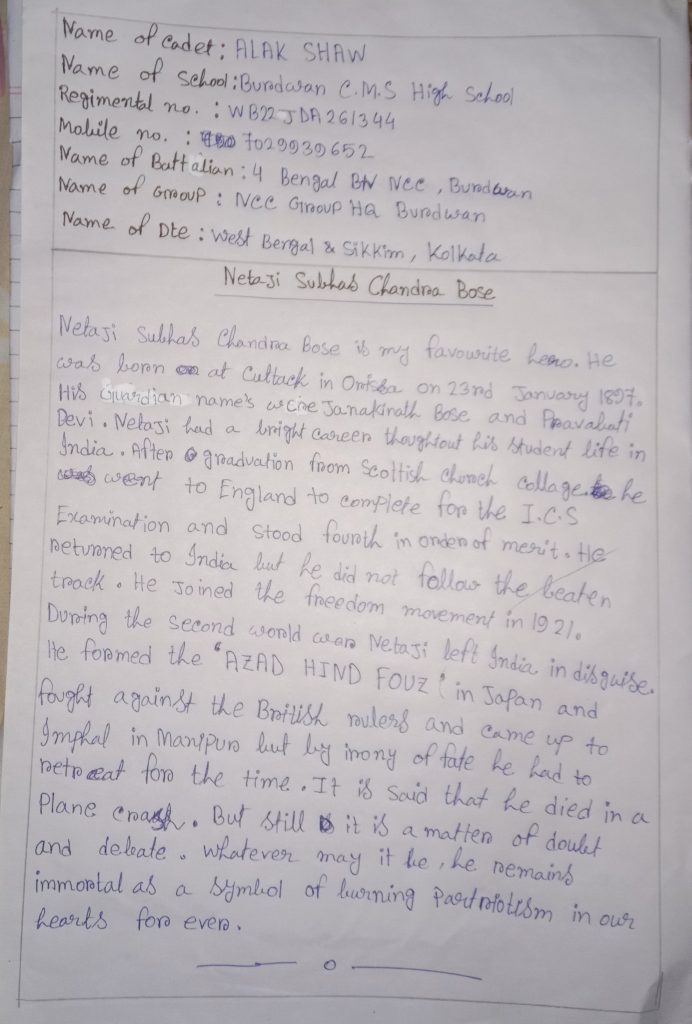 Name of cadet : ALAK SHAW
Name of school : Burdwan C.M.S High School
Regimental no. : WB22JDA261344
Mobile no. : 7029939652
Name of Battalian : 4 Bengal BN NCC , Burdwan
Name of Group : NCC Group HQ Burdwan
Name of Dte : West Bengal & Sikkim , Kolkata
Netaji Subhas Chandra Bose
Netaji Subhas Chandra Bose is my favourite hero. He
was born at Cuttack in Orissa on 23rd January 1897.
His Guardian name's were Janakinath Bose and Pravabati
Devi . Netaji had a bright career thoughtout his student life in
India . After graduation from Scottish church collage he
went to England to complete for the I.C.S
Examination and stood fourth in order of merit . He
returned to India but he did not follow the beaten
track . He joined the freedom movement in 1921.
During the second world war Netaji left India in disguise.
He formed the "AZAD HIND FOUZ" in Japan and
fought against the British rulers and came up to
Imphal in Manipur but by irony of fate he had to
retreat for the time . It is said that he died in a
Plane crash . But still it is a matter of doubt
and debate . Whatever may it be , he remains
immortal as a symbol of burning partriotism in our
hearts for ever .